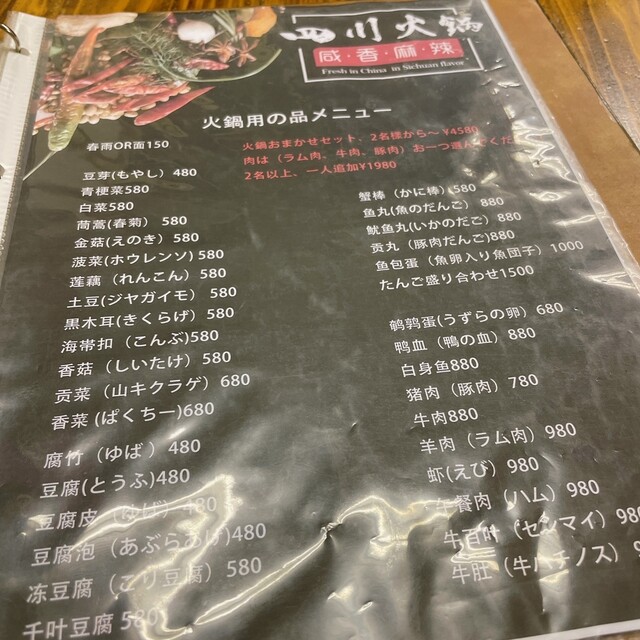 四川火锅
咸·香·麻·辣
Fresh in China in Sichuan flavor
火鍋用の品メニュー
春雨OR面150
火鍋おまかせセット、2名様から～ ¥4580
肉は（ラム肉、牛肉、豚肉）お一つ選んでくだ
2名以上、一人追加¥1980
豆芽(もやし) 480
青梗菜580
白菜580
茼蒿(春菊） 580
金菇(えのき) 580
菠菜(ホウレンソ) 580
莲藕（れんこん）580
土豆(ジヤガイモ） 580
黒木耳(きくらげ）580
海帯扣（こんぶ)580
香菇（しいたけ）580
贡菜（山キクラゲ）680
香菜(ぱくちー)680
腐竹（ゆば）480
豆腐(とうふ)480
豆腐皮（ゆば）480
豆腐泡（あぶらあげ)480
冻豆腐（こり豆腐） 580
千叶豆腐 580
蟹棒（かに棒）580
鱼丸(魚のだんご） 880
鱿鱼丸(いかのだんご) 880
贡丸（豚肉だんご)880
鱼包蛋（魚卵入り魚団子）1000
たんご盛り合わせ1500
鹌鹑蛋(うずらの卵）680
鸭血（鴨の血）880
白身鱼880
猪肉（豚肉）780
牛肉880
羊肉（ラム肉）980
虾(えび）980
餐肉（ハム）980
牛百叶（センマイ）980
牛肚（牛ハチノス）